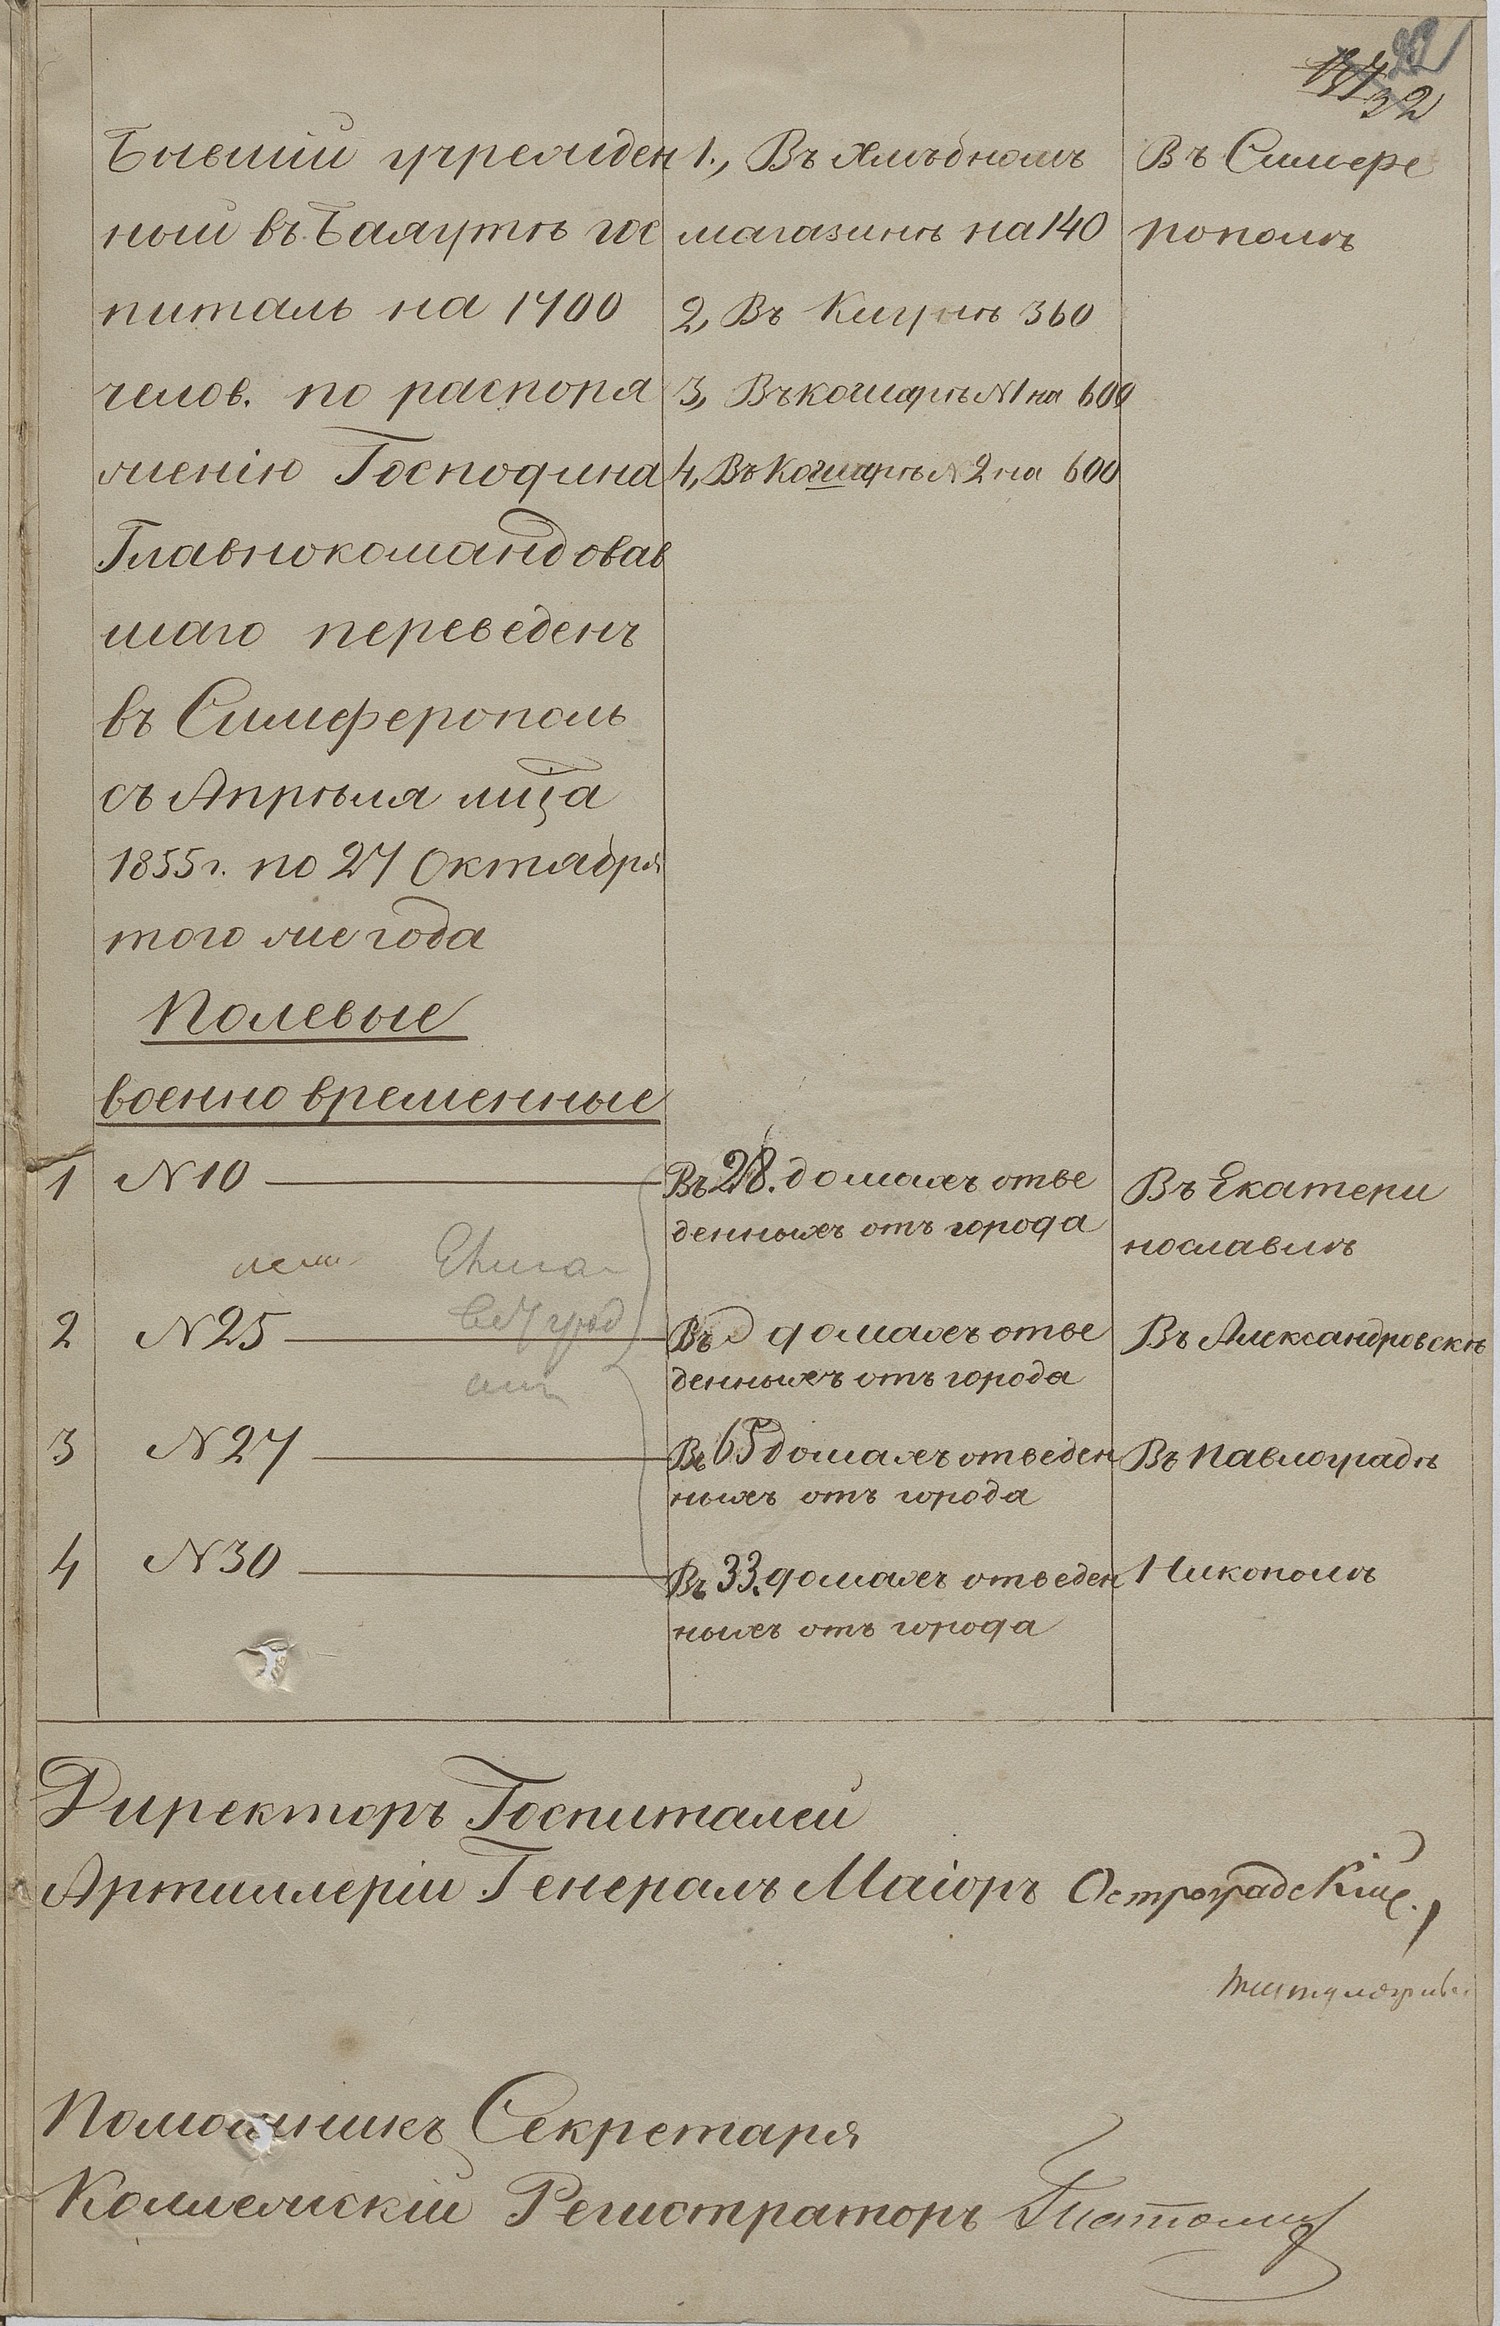 32
Бывшій учрежден
ный въ Баяутѣ гос
питаль на 1700
челов. по распоря
женію Господина
Главнокомандовав
шаго переведенъ
въ Симферополь
съ Апрѣля мца
1855 г. по 27 Октября
того же года
Полевые
военно временные
1., Въ Хлѣбномъ
магазинѣ на 140
2, Въ 360
3, Въ кошарѣ N1 на 600
4, Въ Кошарѣ N 2 на 600
Въ Симфе
рополѣ
1 N 10
Въ 28. домахъ отве
денныхъ отъ города
Въ Екатери
нославлѣ
2 N 25
Въ домахъ отве
денныхъ отъ города
Въ Александровскѣ
3 N 27
Въ 65 домахъ отведен
ныхъ отъ города
Въ Павлоградѣ
4 N 30
Въ 33. домахъ отведен
ныхъ отъ города
Никополѣ
Директоръ Госпиталей
Артиллеріи Генералъ Маіоръ Остроградскій
Помощникъ Секретаря
Коллежскій Регистраторъ